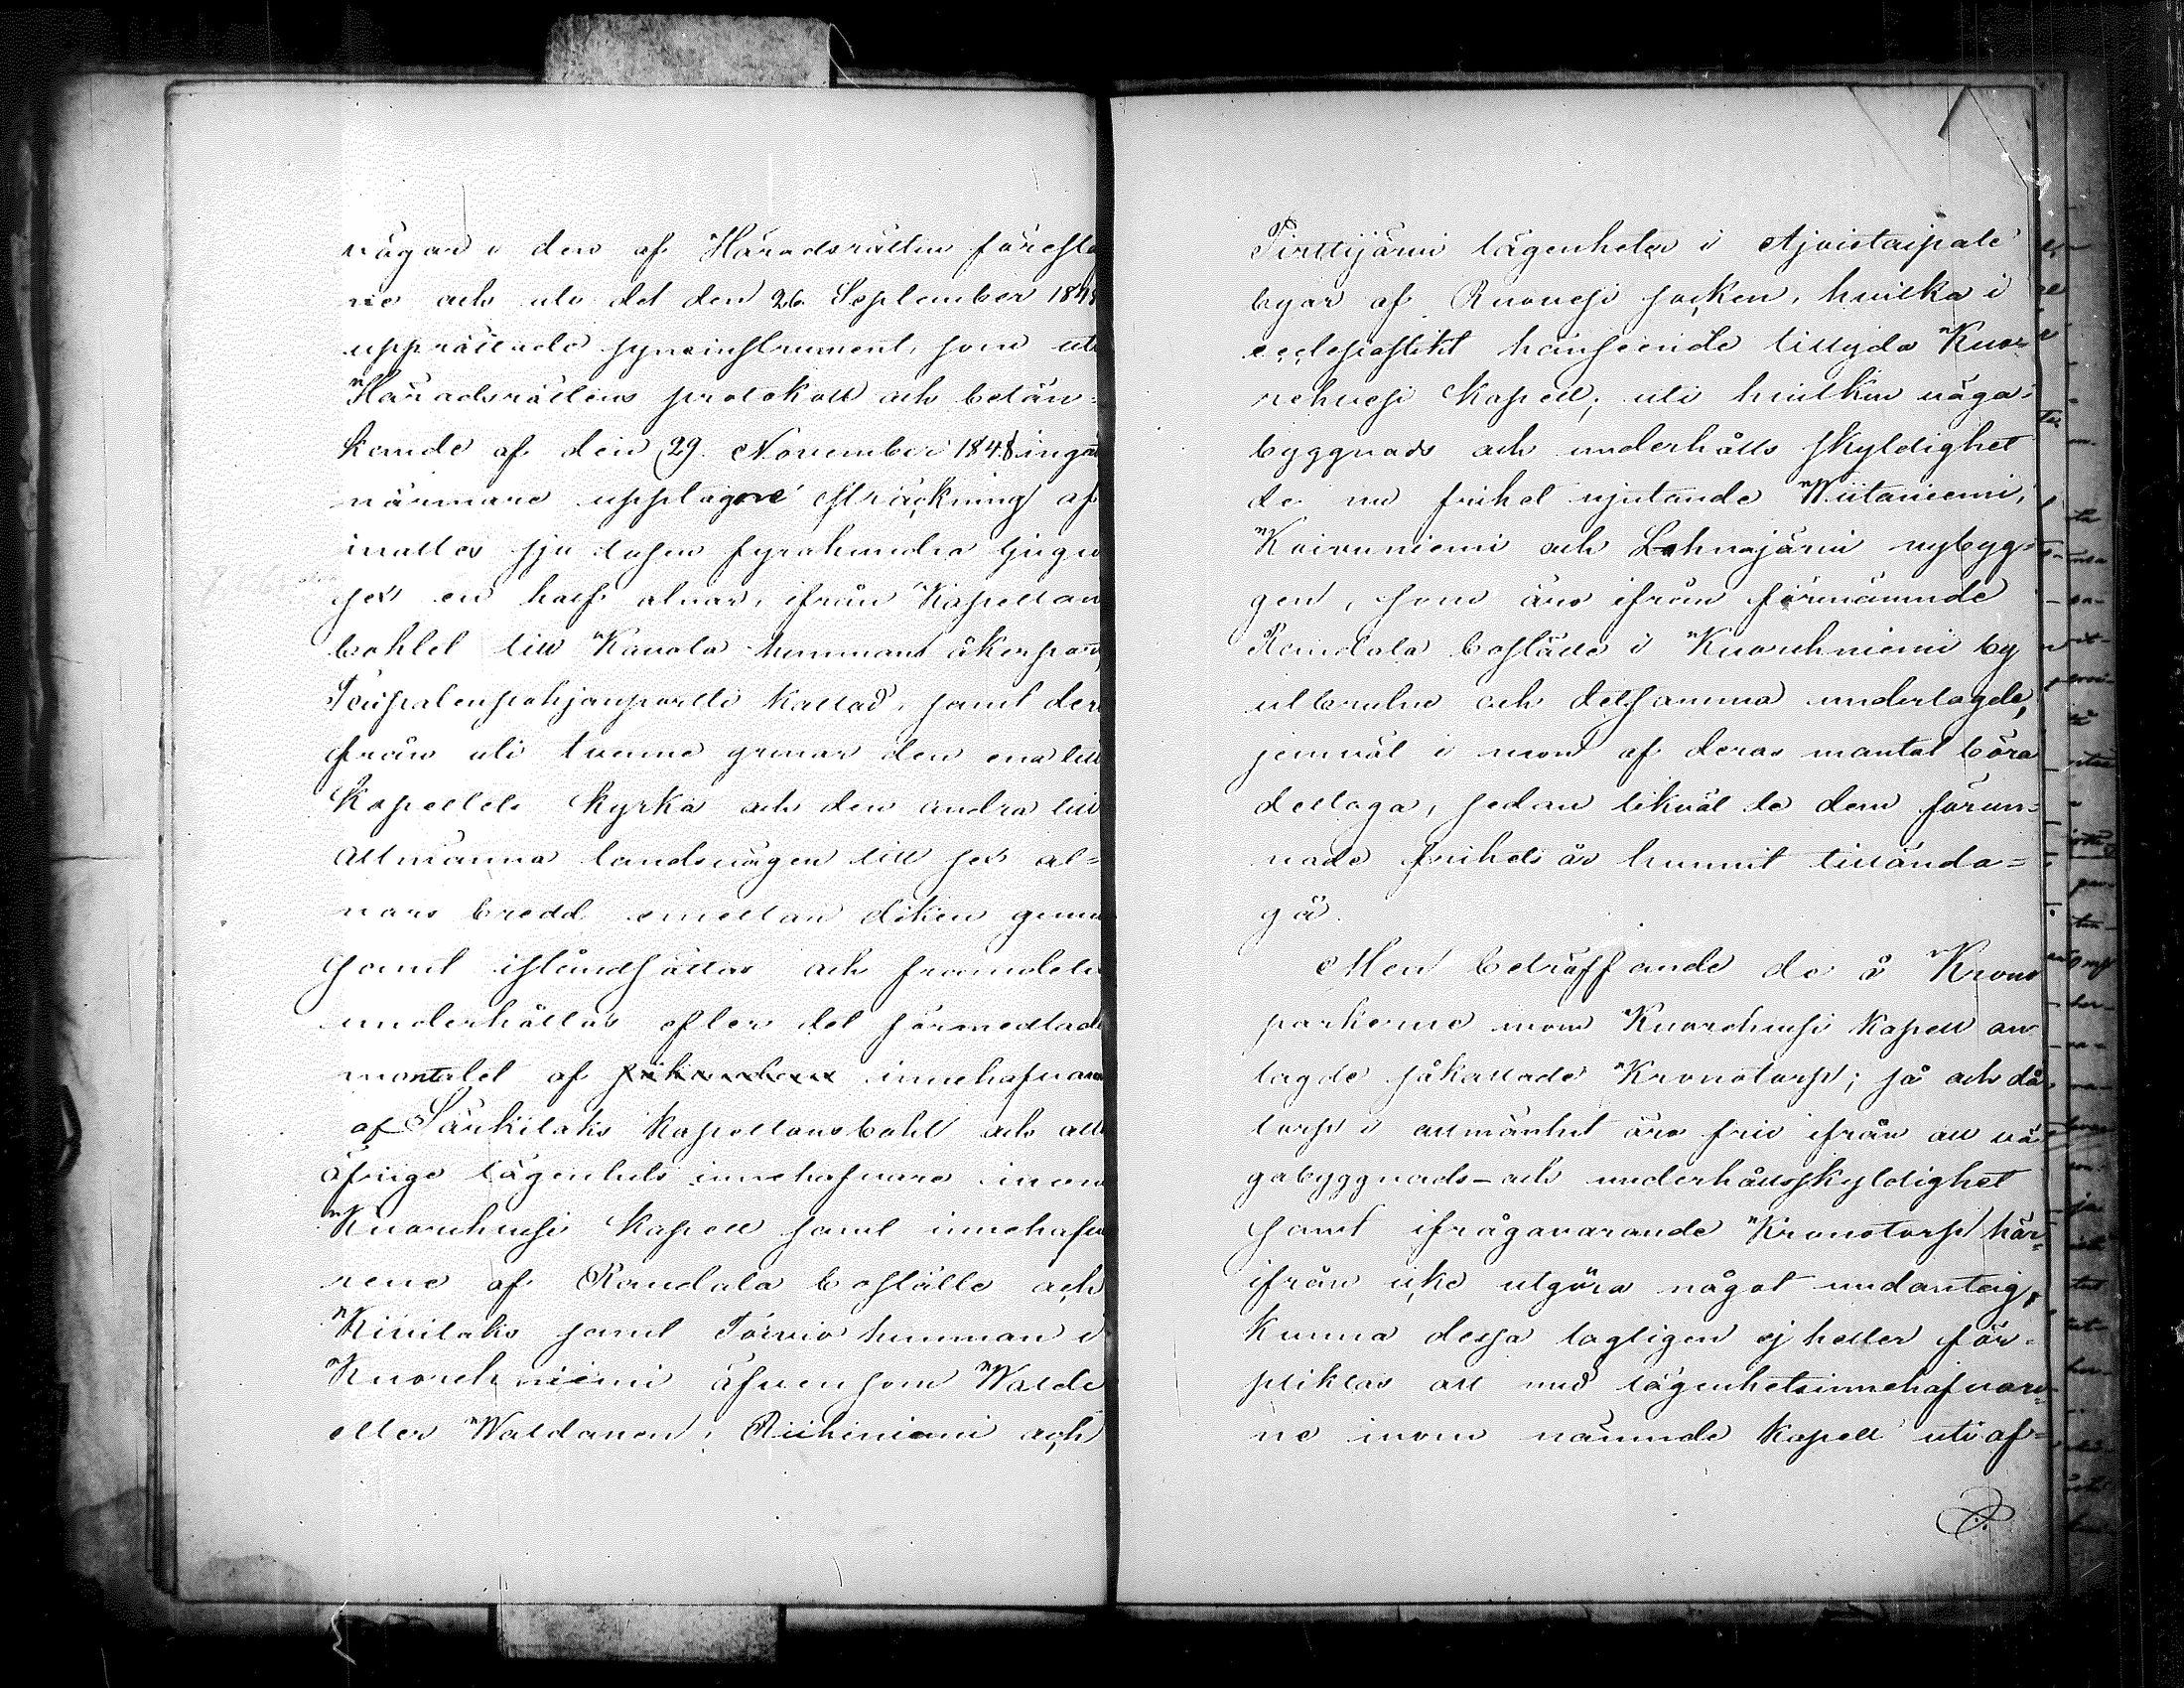 vägar i den af Häradsrätten föresla
ne och uti det den 26. September 1848
upprättade syneinstrument, som uti
Häradsrättens protokoll och betän=
kande af den 29. November 1848 ingår
närmare upptagne sträckning af
inalles sju tusen fyrahundra tjugu
sex en half alnar, ifrån Kapellans
bohlet till Kauala hemmans åkerspann,
Taipalenpohjanpelto kallad, samt der
ifrån uti tvenne grenar den ena till
Kapellets kyrka och den andra till
allmänna landsvägen till sex al=
nars bredd emellan diken genast
samt iståndsättas och framdeles
underhållas efter det förmedlade
mantalet af innehafvaren
af Särkilaks Kapellansbohl och alla
öfrige lägenhets innehafvare inom
Kuorehvesi Kapell samt innehafva
rene af Randala boställe och
Kivilaks samt Törviö hemman i
Kuorehniemi äfvensom Walde
eller Waldanen, Riihiniemi och
Pirttijärvi lägenheter i Ajoistaipale
byar af Ruovesi socken, hvilka i
ecclesiastikt hänseende tillyda Kuo-
rehvesi Kapell; uti hvilken väga-
byggnads och underhålls skyldighet
de nu frihet njutande Wiitaniemi,
Koivuniemi och Lehnajärvi nybyg=
gen, som äro ifrån förnämnde
Randala boställe i Kuorehniemi by
utbrutne och detsamma underlagde,
jemväl i mon af deras mantal böra
deltaga, sedan likväl de dem förun=
nade frihets år hunnit tillända=
gå.
Men beträffande de å Krono
parkerne inom Kuorehvesi Kapell an
lagde såkallade Kronotorp; så och då
torp i allmänhet äro fria ifrån all vä
gabyggnads- och underhållsskyldighet
samt ifrågavarande Kronotorp här=
ifrån icke utgöra något undantag,
kunna dessa lagligen ej heller för=
pliktas att med lägenhetsinnehafvare=
ne inom nämnde Kapell uti af=